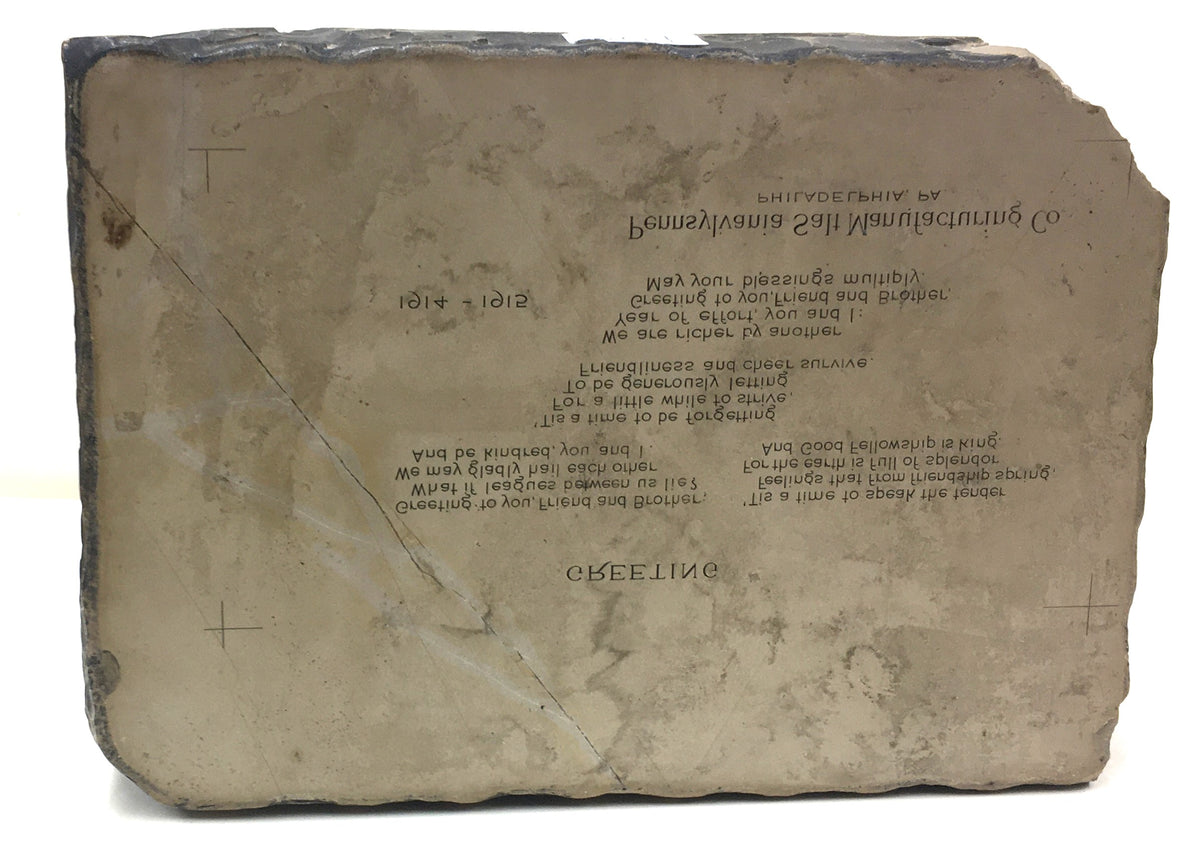 GREETING
Greeting to you, Friend and Brother,
What if leagues between us lie?
We may gladly hail each other
And be kindred, you and I.
'Tis a time to speak the tender
Feelings that from friendship spring,
For the earth is full of splendor
And Good Fellowship is king.
'Tis a time to be forgetting
For a little while to strive,
To be generously letting
Friendliness and cheer survive.
We are richer by another
Year of effort, you and I:
Greeting to you, Friend and Brother,
May your blessings multiply.
1914 - 1915
Pennsylvania Salt Manufacturing Co.
PHILADELPHIA, PA.